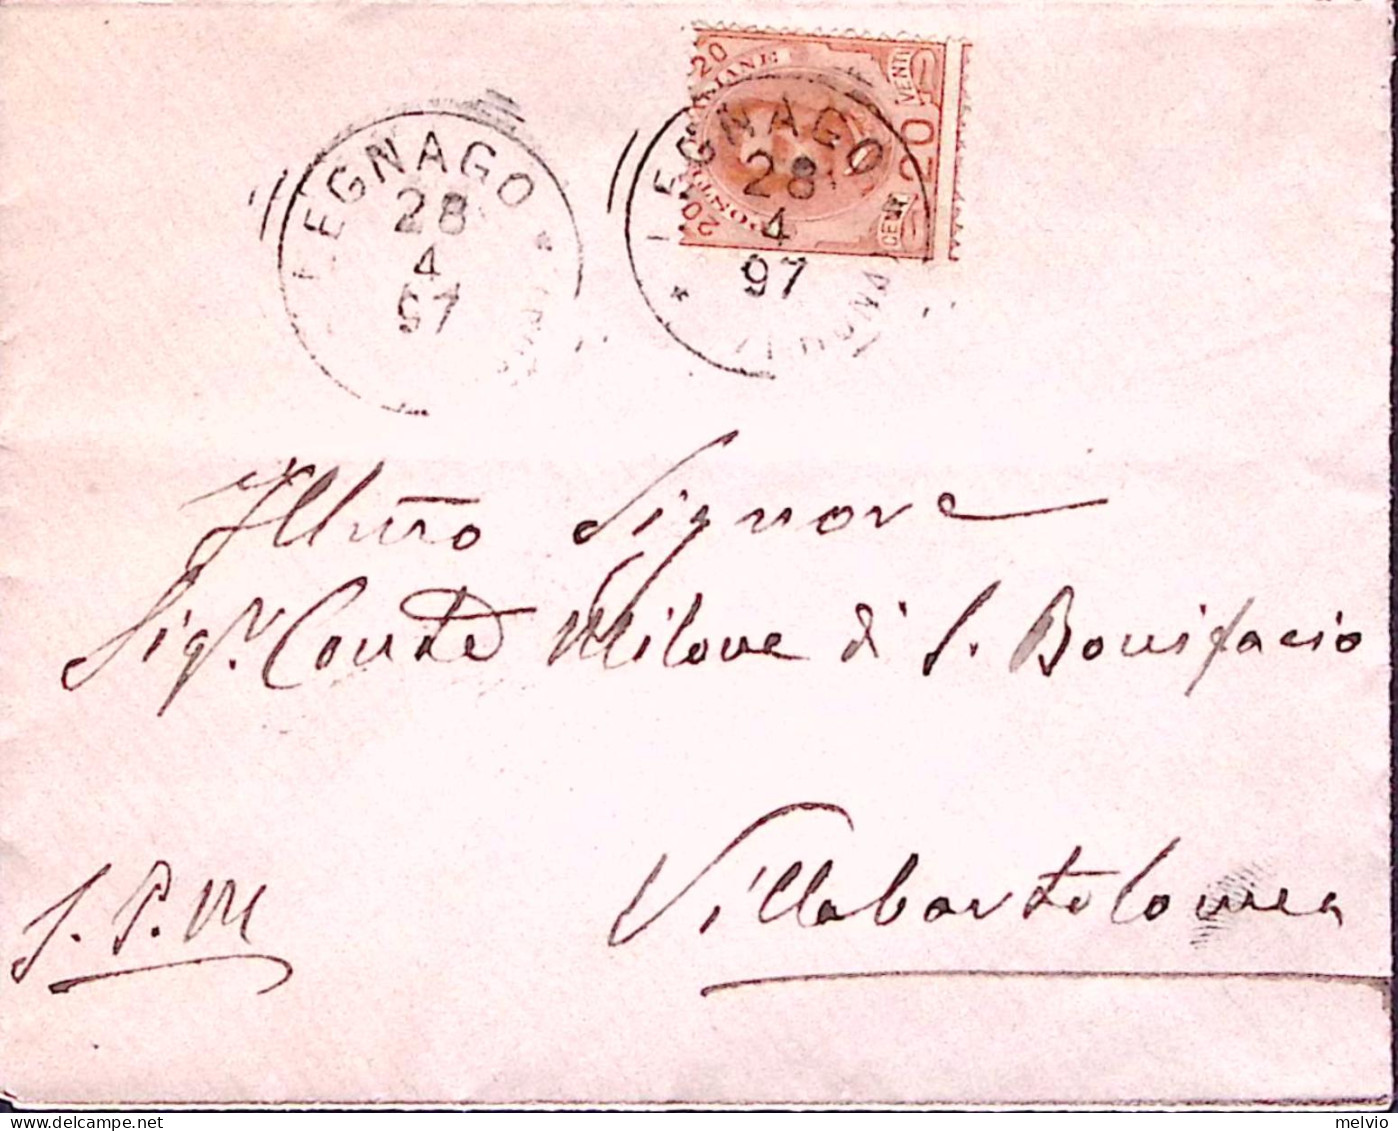 LEGNAGO
28
4
97
20
POSTE ITALIANE
VENTI
20
CENT.
20
LEGNAGO
28
4
97
Illmo Signore
Sigr. Conte Milone di S. Bonifacio
Villabartolomea
S. P. M
melvio